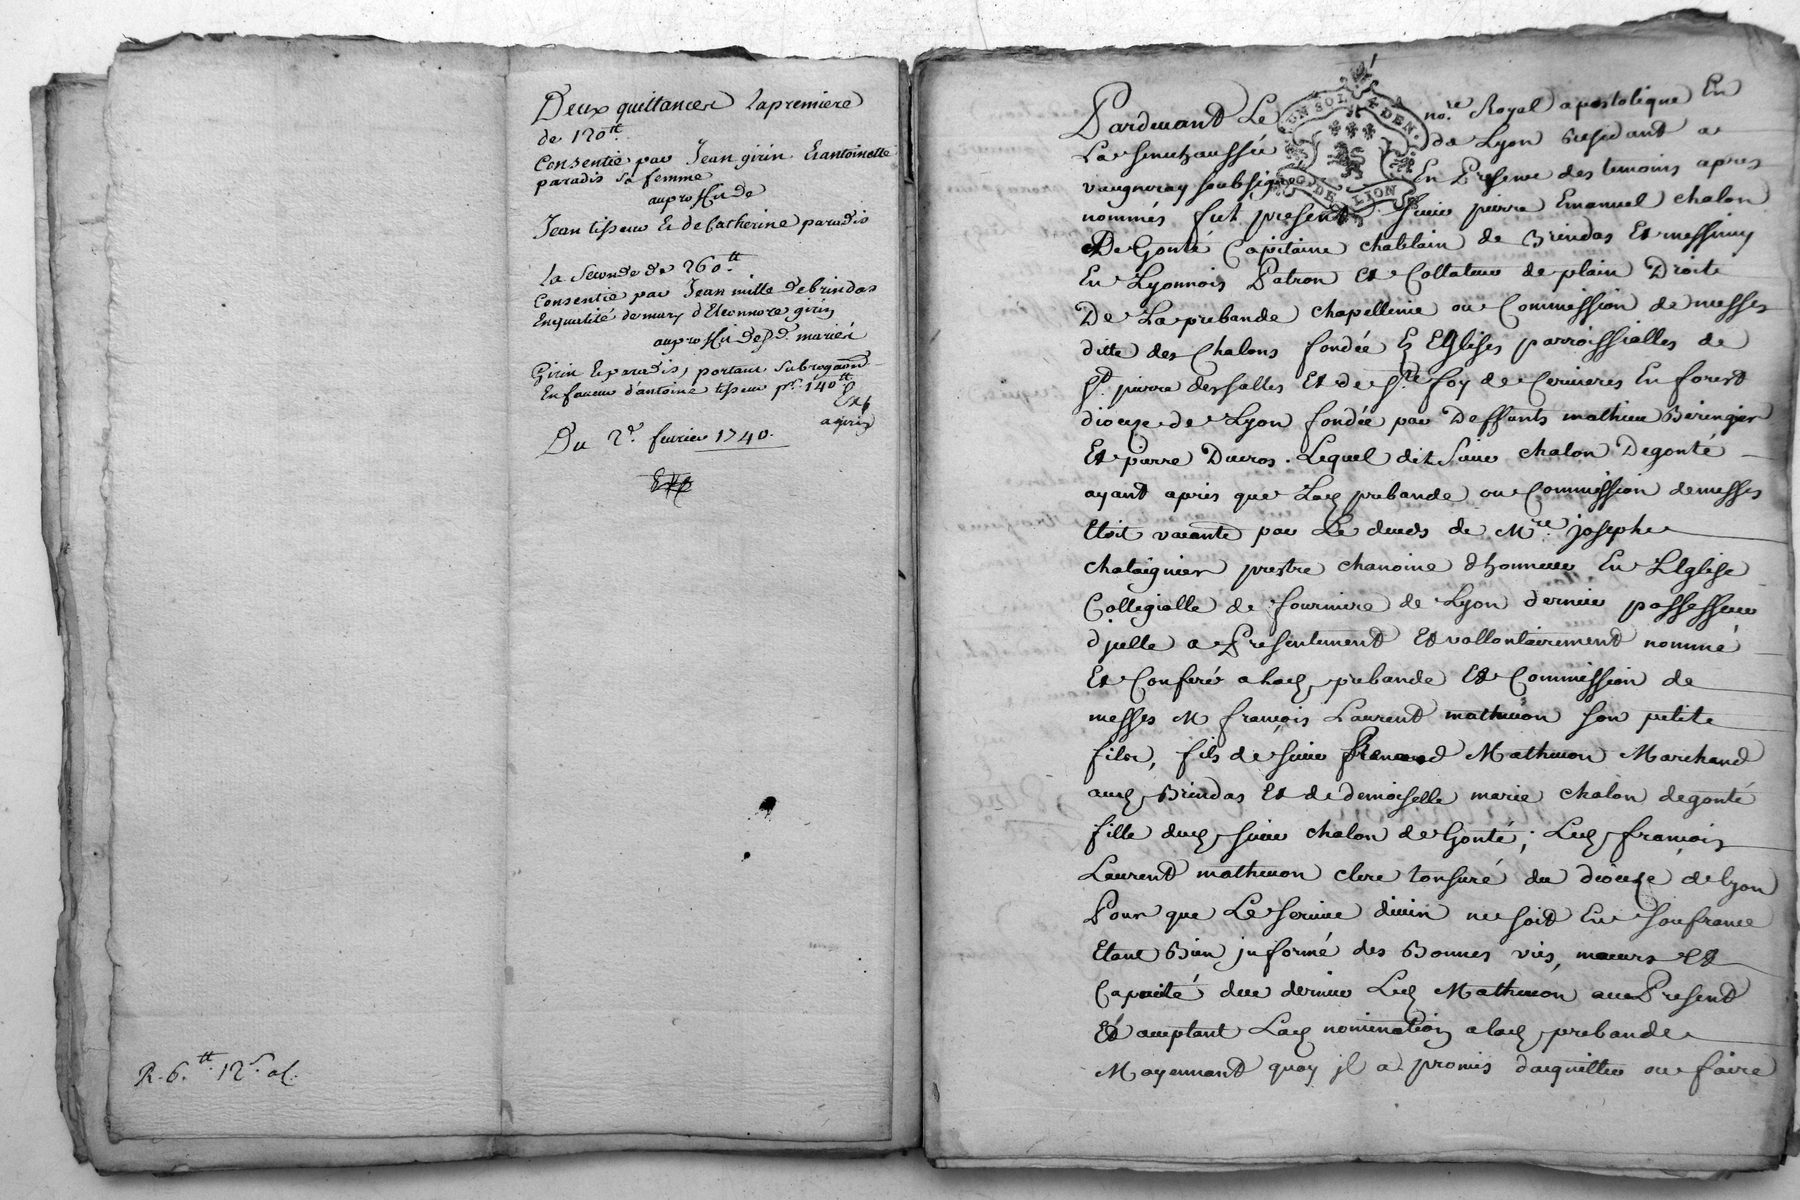 Deux quittances La premiere
de 120.tt
Consentie par Jean girin Et antoinette
paradis sa femme
au proffit de
Jean tisseur Et de Catherine paradis
La Seconde de 260.tt
Consentie par Jean mille de brindas
En qualité de mary d'Eleonnore girin
au proffit desd. mariés
Girin Et paradis, portant Subrogaon
En faveur d'antoine tisseur pr. 140tt
Exp
a girin
Du 2e. fevrier 1740.
Exp
R. 6.tt 12s. o d.
Pardevant Le no.re Royal apostolique En
La Senechaussée de Lyon residant a
vaugneray soubsigné En Presence des temoins apres
nommés fut present Sieur pierre Emanuel chalon
De Gonté Capitaine chatelain de Brindas Et messimy
En Lyonnois Patron Et Collateur de plain Droit
De La prebande chapellenie ou Commission de messes
ditte des Chalons fondée Es Eglises parroissialles de
St. pierre des salles Et de Ste foy de Cervieres En forest
dioceze de Lyon fondée par Deffunts mathieu Beringier
Et pierre Ducros. Lequel dit Sieur chalon Degonté
ayant apris que Lad. prebande ou Commission de messes
Etoit vacante par Le deceds de Mre. josephe
chataignier prestre chanoine d'honneur En L'Eglise
Collegialle de fourviere de Lyon dernier possesseur
d'jcelle a Presentement Et vollontairement nommé
Et Conferé a lad. prebande Et Commission de
messes M françois Laurent mathevon son petite
fils, fils de sieur Mathevon Marchand
aud. Brindas Et de demoiselle marie chalon degonté
fille dud. sieur chalon de Gonté; Led. françois
Laurent mathevon clerc tonsuré du diocese de lyon
Pour que Le service divin ne soit En soufrance
Etant Bien jnformé des Bonnes vies, mœurs Et
Capacité du dernier Led. Mathevon au Present
Et acceptant Lad. nomination a lad. prebande
Moyennant quoy jl a promis d'acquitter ou faire
UN SOL 4 DEN.
G. DE LION